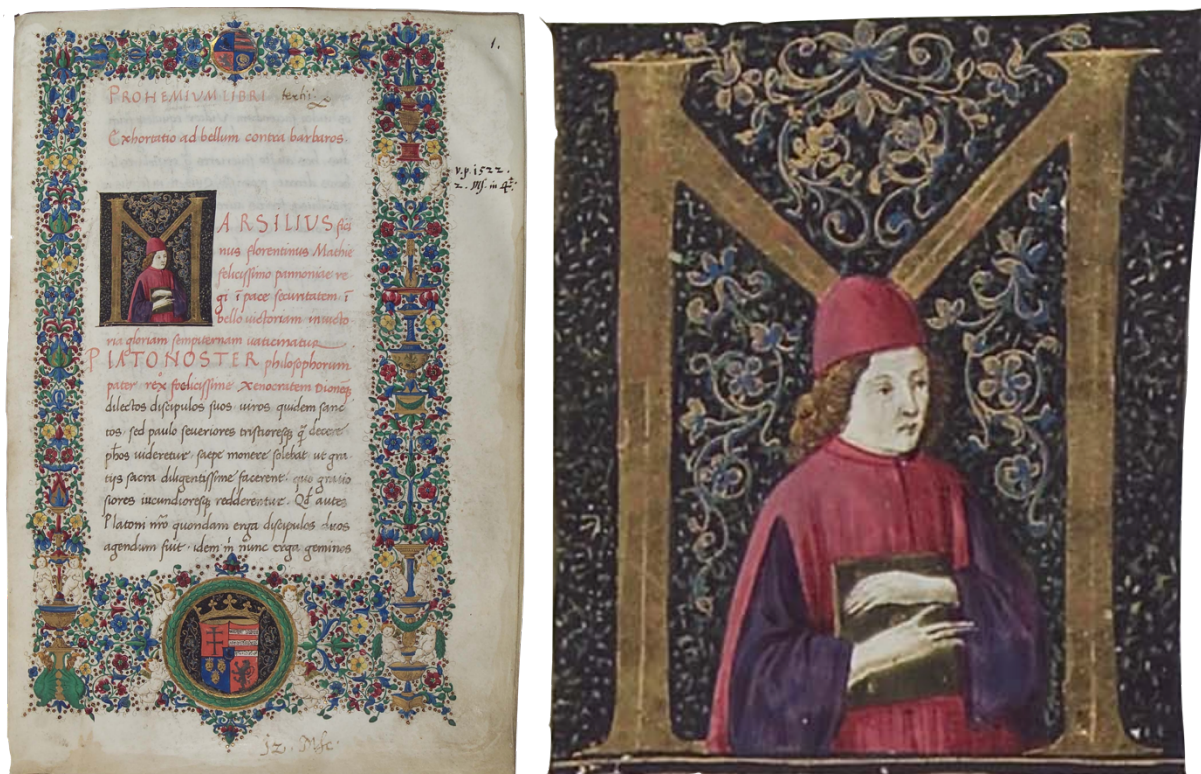 1.
PROHEMIUM LIBRI tertii
Exhortatio ad bellum contra barbaros.
v.p. 1522.
2. Ms. in 4º
MARSILIUS fici
nus florentinus Mathie
felicissimo pannoniae re
gi ī pace securitatem ī
bello uictoriam in uicto
ria gloriam sempiternam uaticinatur
PLATO NOSTER philosophorum
pater rex foelicissime Xenocratem Dionēq
dilectos discipulos suos uiros quidem sanc
tos sed paulo seueriores tristioresq q̄ decere
phōs uideretur saepe monere solebat ut gra
tijs sacra diligentissime facerent quo gratio
siores iucundioresq redderentur. Qd autē
Platoni nr̄o quondam erga discipulos duos
agendum fuit idem m̄ nunc erga geminos